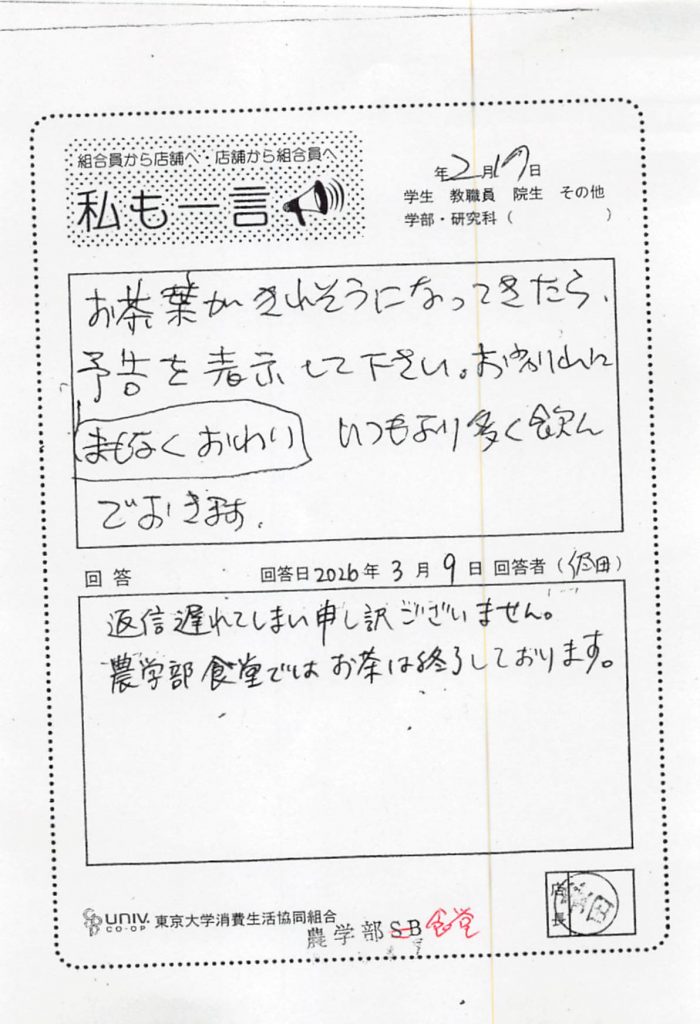 組合員から店舗へ・店舗から組合員へ
私も一言
年2月17日
学生 教職員 院生 その他
学部・研究科( )
お茶葉がきれそうになってきたら、
予告を表示して下さい。おゆかりに
まもなくおわり いつもより多く飲ん
でおきます。
回答 回答日2026年3月9日 回答者(沼田)
返信遅れてしまい申し訳ございません。
農学部食堂ではお茶は終了しております。
店長
UNIV. CO-OP 東京大学消費生活協同組合
農学部SB食堂